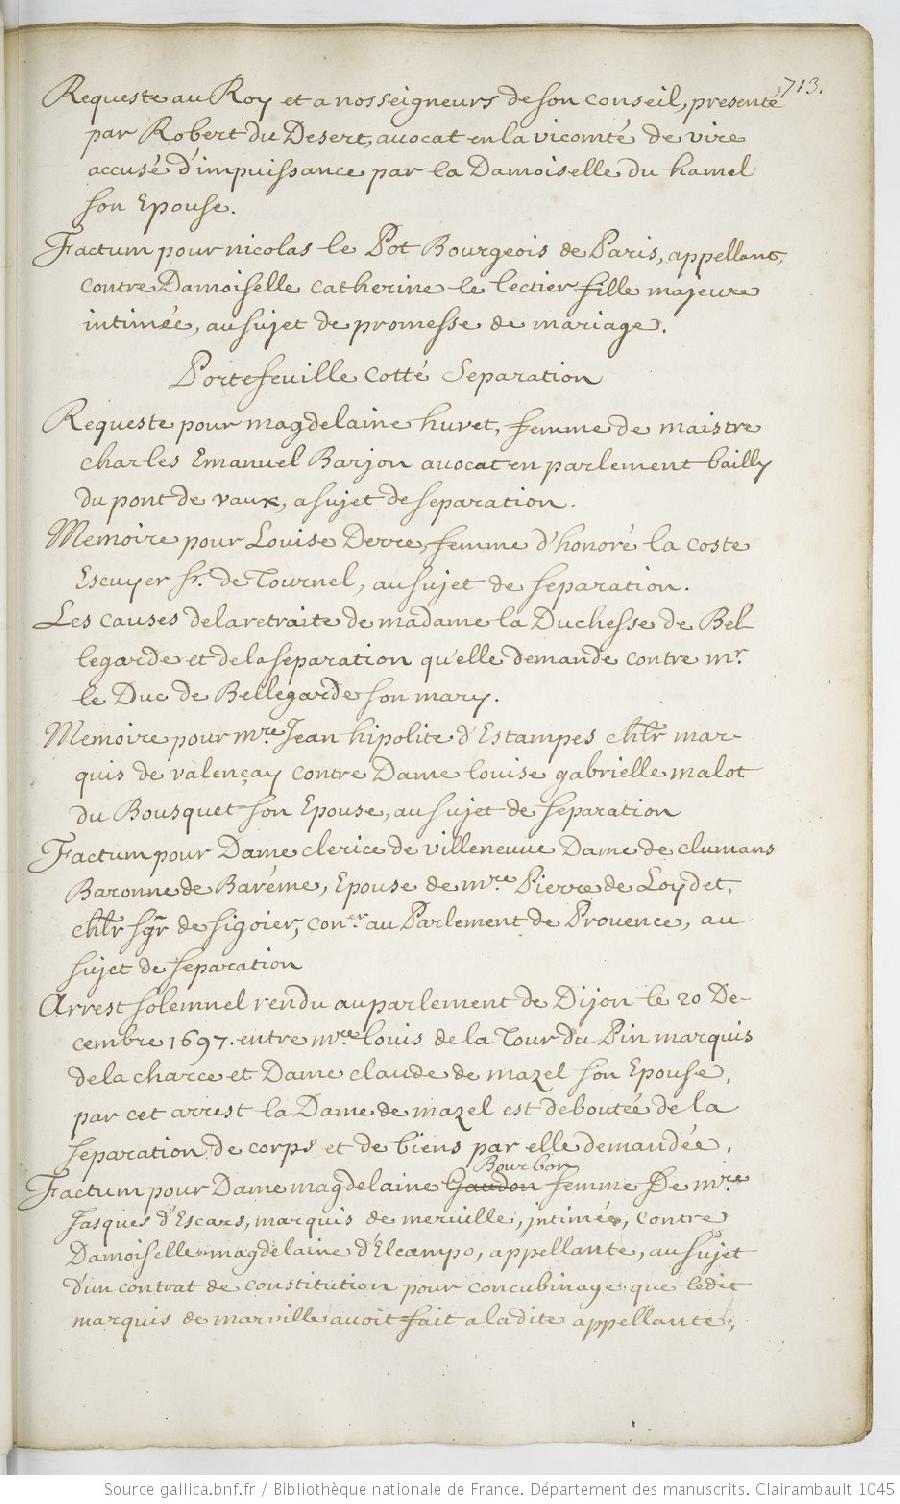 713.
Requeste au Roy et a nosseigneurs de son conseil, presenté
par Robert du Desert, avocat en la vicomté de vire
accusé d'impuissance par la Damoiselle du hamel
son Epouse.
Factum pour nicolas le Pot Bourgeois de Paris, appellant,
contre Damoiselle catherine le lectier fille majeure
intimée, au sujet de promesse de mariage.
Portefeuille cotté Separation
Requeste pour magdelaine huret, femme de maistre
charles Emanuel Barjon avocat en parlement bailly
du pont de vaux, a sujet de separation.
Memoire pour Louise Derre, femme d'honoré la coste
Escuyer sr. de Tournel, au sujet de separation.
Les causes de la retraite de madame la Duchesse de Bel-
legarde et de la separation qu'elle demande contre mr.
le Duc de Bellegarde son mary.
Memoire pour mre Jean hipolite d'Estampes chlr mar-
quis de valençay contre Dame louise gabrielle malot
du Bousquet son Epouse, au sujet de separation
Factum pour Dame clerice de villeneuve Dame de clumans
Baronne de Barême, Epouse de mre Pierre de Loydet,
chlr sgr de sigoier, coner au Parlement de Provence, au
sujet de separation
Arrest solemnel rendu au parlement de Dijon le 20 De-
cembre 1697. entre mre louis de la Tour du Pin marquis
de la charce et Dame claude de mazel son Epouse,
par cet arrest la Dame de mazel est deboutée de la
separation de corps et de biens par elle demandée,
Bourbon
Factum pour Dame magdelaine Gaudon femme De mre
Jasques d'Escars, marquis de merville, intimée, contre
Damoiselle magdelaine d'Elcampo, appellante, au sujet
d'un contrat de constitution pour concubinage que ledit
marquis de marville avoit fait a ladite appellante,
Source gallica.bnf.fr / Bibliothèque nationale de France. Département des manuscrits. Clairambault 1045